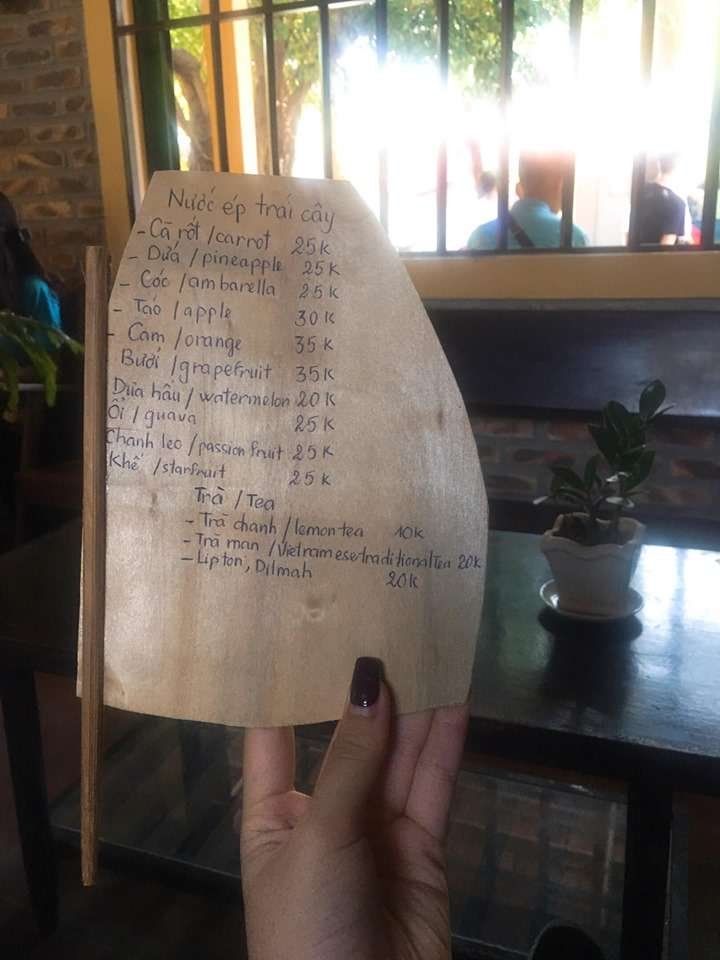 Nước ép trái cây
- Cà rốt / carrot 25k
- Dứa / pineapple 25k
- Cóc / ambarella 25k
- Táo / apple 30k
- Cam / orange 35k
Bưởi / grapefruit 35k
Dưa hấu / watermelon 20k
Ổi / guava 25k
Chanh leo / passion fruit 25k
Khế / starfruit 25k
Trà / Tea
- Trà chanh / lemon tea 10k
- Trà man / Vietnamese traditional Tea 20k
- Lipton, Dilmah 20k